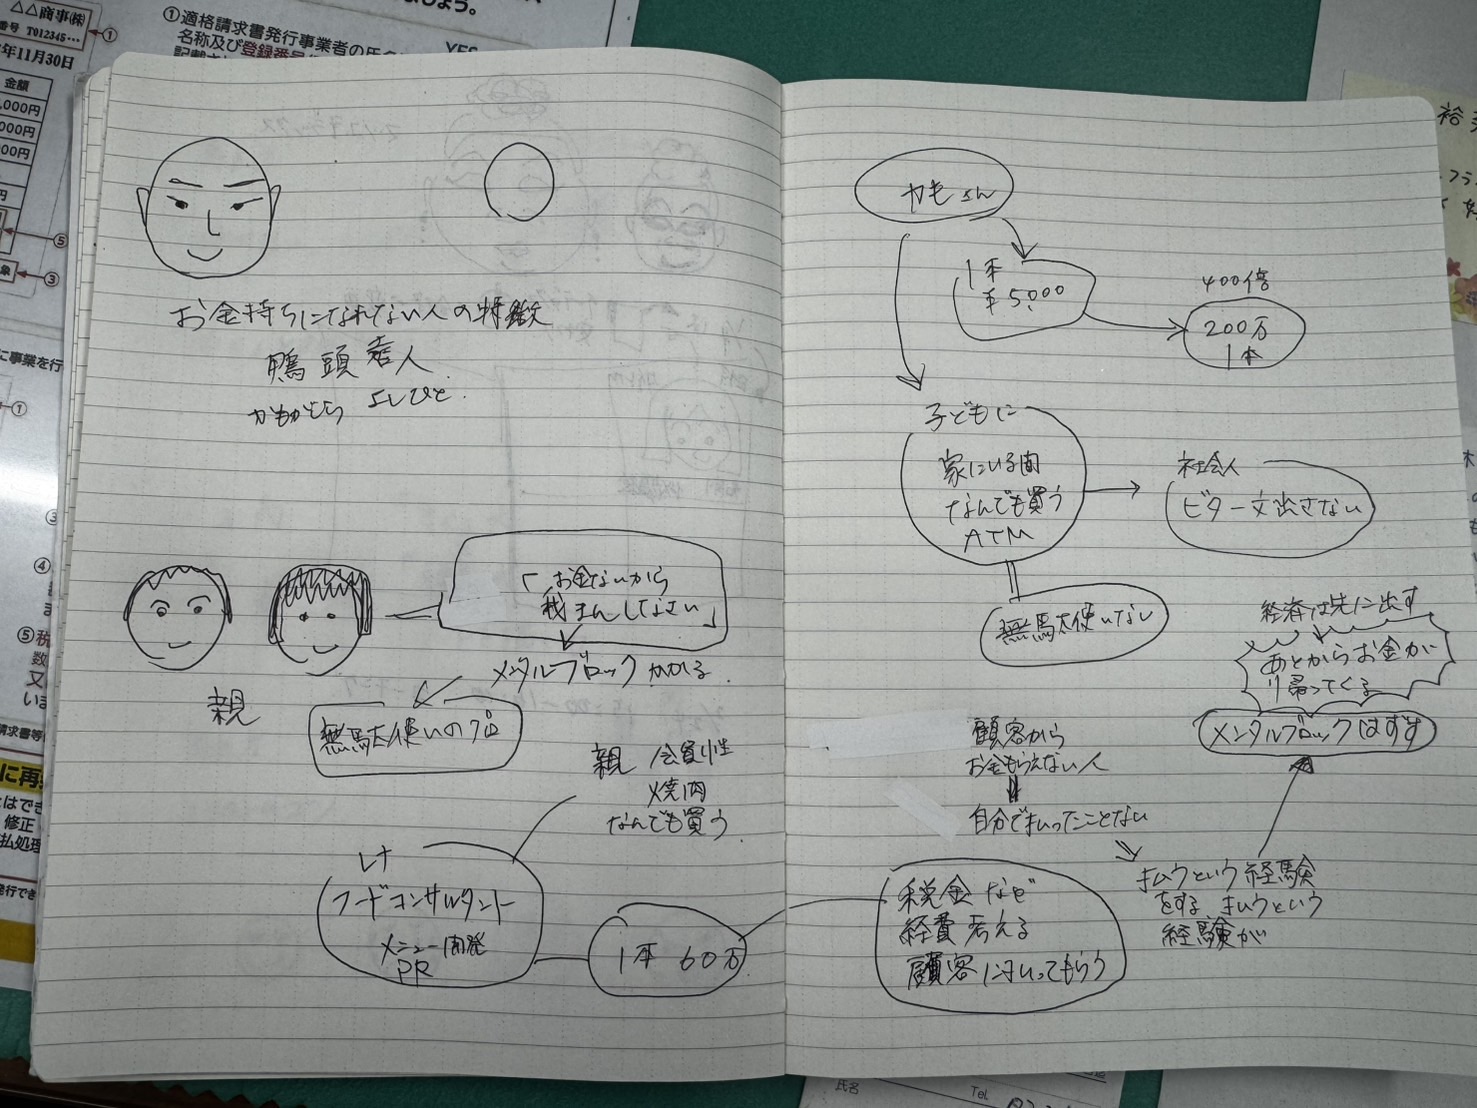 △△商事㈱
番号 T012345…
①
年11月30日
金額
,000円
000円
00円
円
⑤
象
③
①適格請求書発行事業者の氏
名称及び登録番号
YES
ましょう。
に事業を行
①
④
⑤税
数
又
いま
請求書等
に再
とはでき
修正
払処理
発行でき
お金持ちになれない人の特徴
鴨頭 嘉人
かもがしら よしひと
「お金ないから
我まんしなさい」
メンタルブロックかかる
親
無駄使いのプロ
親 会員制
焼肉
なんでも買う
フードコンサルタント
メニュー開発
PR
1本 60万
かもさん
1本
¥5000
400倍
200万
1本
子どもに
家にいる間
なんでも買う
ATM
社会人
ビタ一文出さない
無駄使いない
経済は先に出す
あとからお金が
り帰ってくる
メンタルブロックはずす
顧客から
お金もらえない人
自分で払ったことない
払うという経験
をする 払うという
経験が
税金など
経費考える
顧客に払ってもらう
裕
氏名
Tel